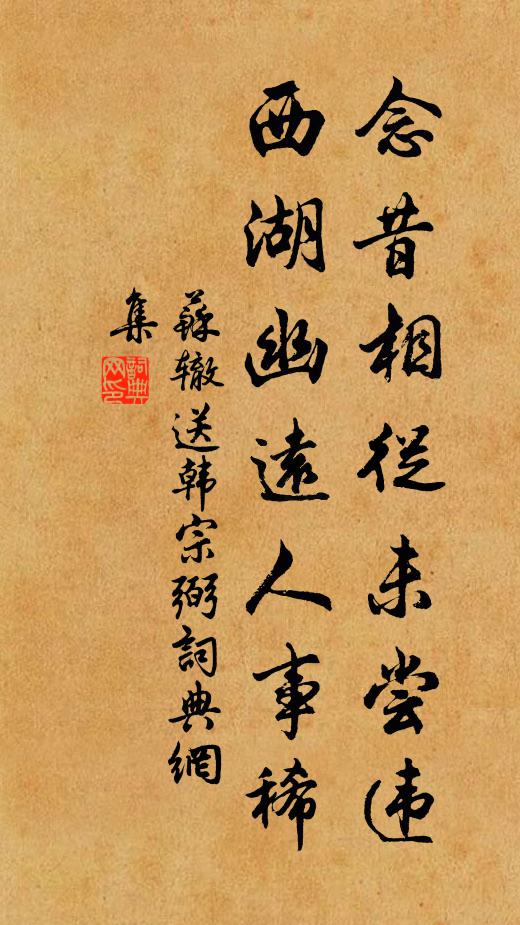 念昔相從未尝违
西湖幽遠人事稀
蘇辙送韩宗弼詞典網
集
詞典网印